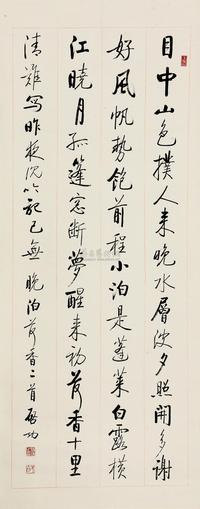 目中山色撲人来晚水層波夕照開多謝
好風帆勢飽前程小泊是蓬萊白露橫
江曉月孤篷窓断夢醒来初荷香十里
清難寫昨夜沉吟記已無 晚泊荷香二首 啟功